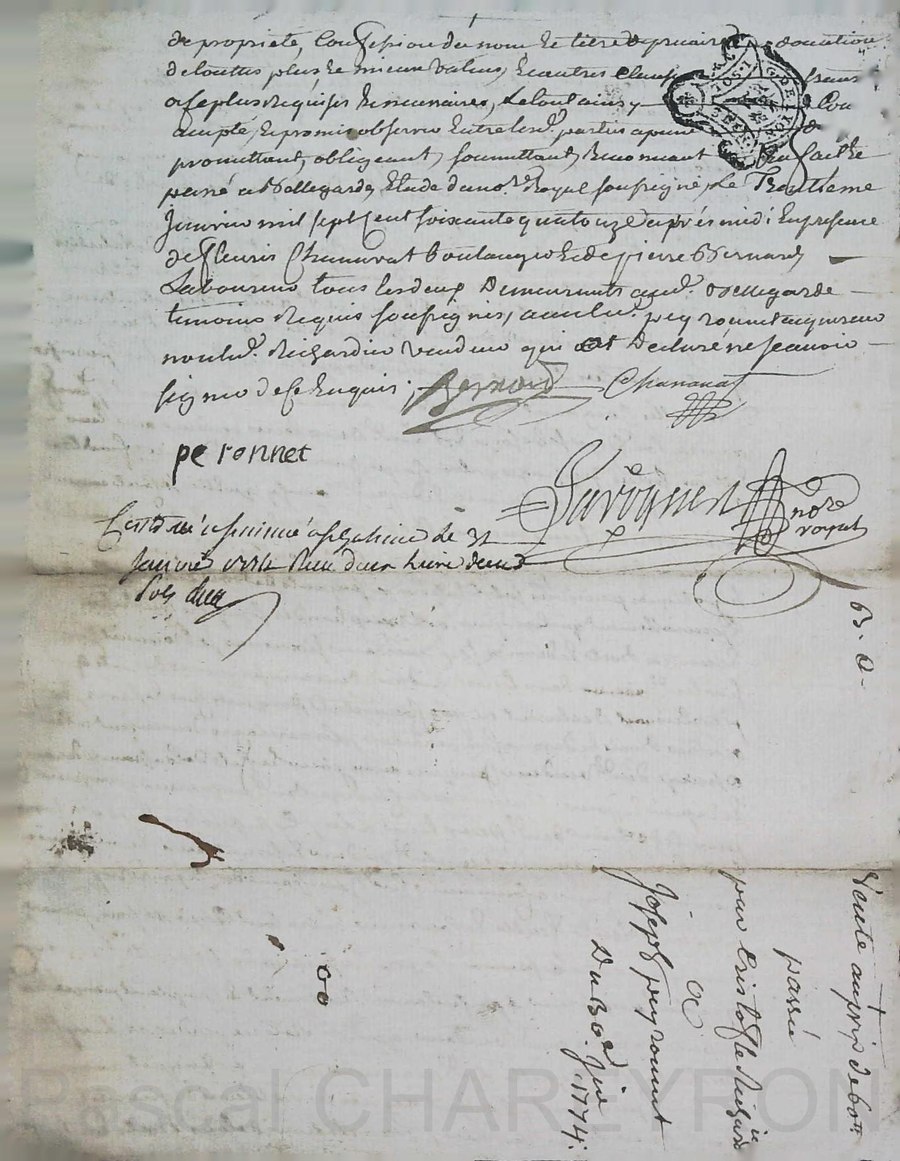 de propriete, Confession du nom de titre de precaire donation
de toutes plus & mieux values, & autres clauses
a ce plus requises & necessaires, le tout ainsy
accepté, & promis observer entre lesd. parties a peine
promettant, obligeant, soumettant, renonceant fait &
passé a Bellegarde, Etude du no.re Royal soussigné, Le Trentieme
Janvier mil sept cent soixante quatorze apres midi En presence
de fleuris Chanavat boulanger & de pierre Bernard
Laboureur tous les deux Demeurants aud. Bellegarde
temoins Requis soussignés, avec led. peyronnet acquereur
non led. Richard vendeur qui a Declaré ne scavoir
signer de ce Enquis; Bernard Chanavat
pe ronnet
no.re
royal
Janvier 1774 Reçu
B. Q.
Vente au prix de 60 tt
passée
par Cristofle Richard
a
Joseph peyronnet
Du 30e Jier 1774.
Pascal CHARLEYRON